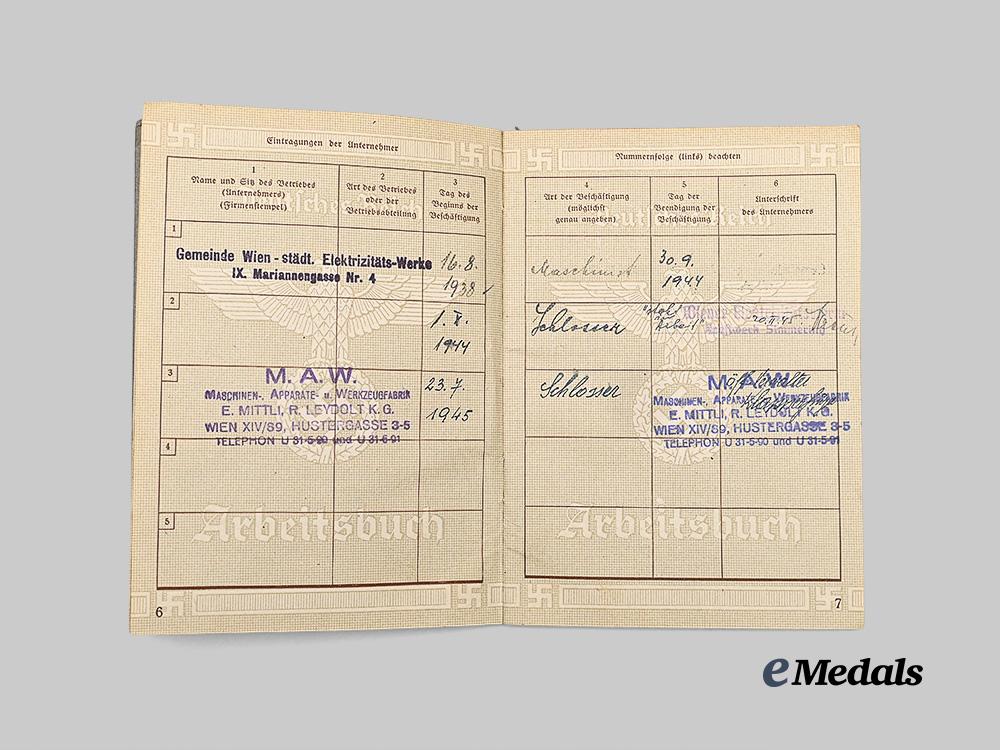 Eintragungen der Unternehmer
1
Name und Sitz des Betriebes
(Unternehmers)
(Firmenstempel)
2
Art des Betriebes
oder der
Betriebsabteilung
3
Tag des
Beginns der
Beschäftigung
1
Gemeinde Wien - städt. Elektrizitäts-Werke
IX. Mariannengasse Nr. 4
16. 8.
1938
2
1. X.
1944
3
M. A. W.
MASCHINEN-, APPARATE- u. WERKZEUGFABRIK
E. MITTLI, R. LEYDOLT K. G.
WIEN XIV/89, HUSTERGASSE 3-5
TELEPHON U 31-5-90 und U 31-5-91
23. 7.
1945
4
5
Arbeitsbuch
6
Nummernfolge (links) beachten
4
Art der Beschäftigung
(möglichst
genau angeben)
5
Tag der
Beendigung der
Beschäftigung
6
Unterschrift
des Unternehmers
Deutsches Reich
Maschinist
30. 9.
1944
Schlosser
Simmering
Schlosser
M. A. W.
MASCHINEN-, APPARATE- u. WERKZEUGFABRIK
E. MITTLI, R. LEYDOLT K. G.
WIEN XIV/89, HUSTERGASSE 3-5
TELEPHON U 31-5-90 und U 31-5-91
Arbeitsbuch
7
eMedals